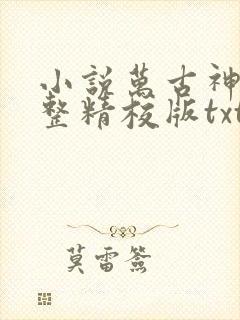 小説萬古神
整精校版txt
莫雷簽